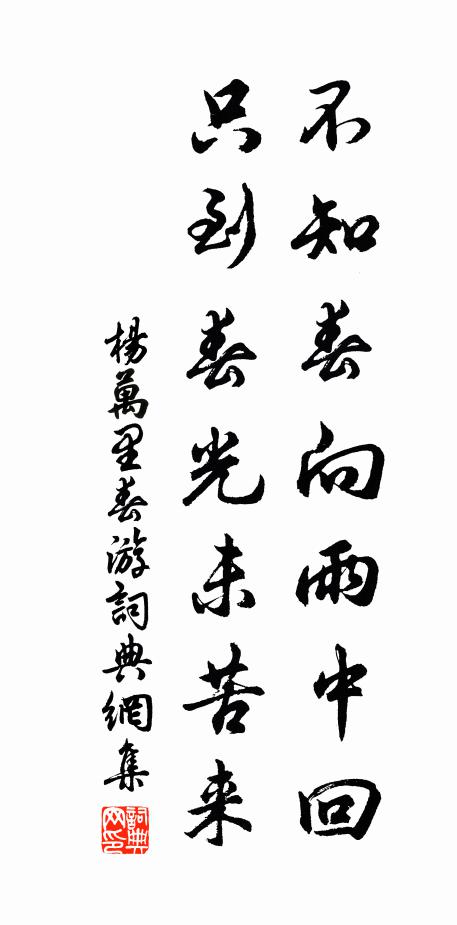 不知春向雨中回
只到春光未苦来
楊萬里春游詞典網集
詞典网印